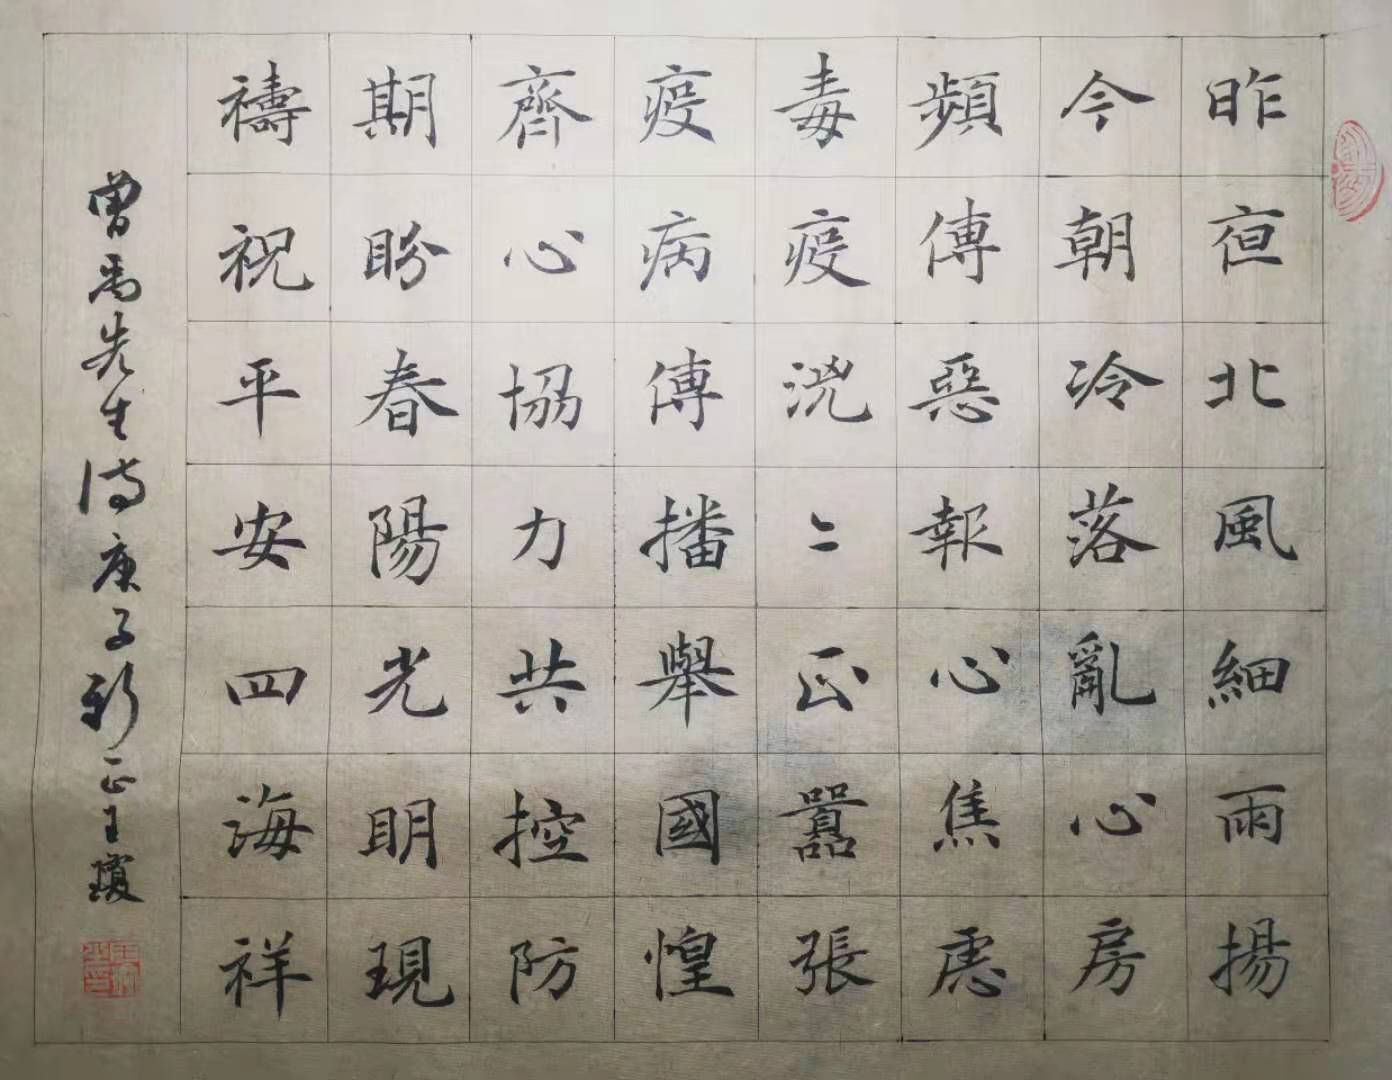 昨夜北風細雨揚
今朝冷落亂心房
頻傳惡報心焦慮
毒疫洶〻正囂張
疫病傳播舉國惶
齊心協力共控防
期盼春陽光明現
禱祝平安四海祥
曾禹先生诗庚子新正王瓊